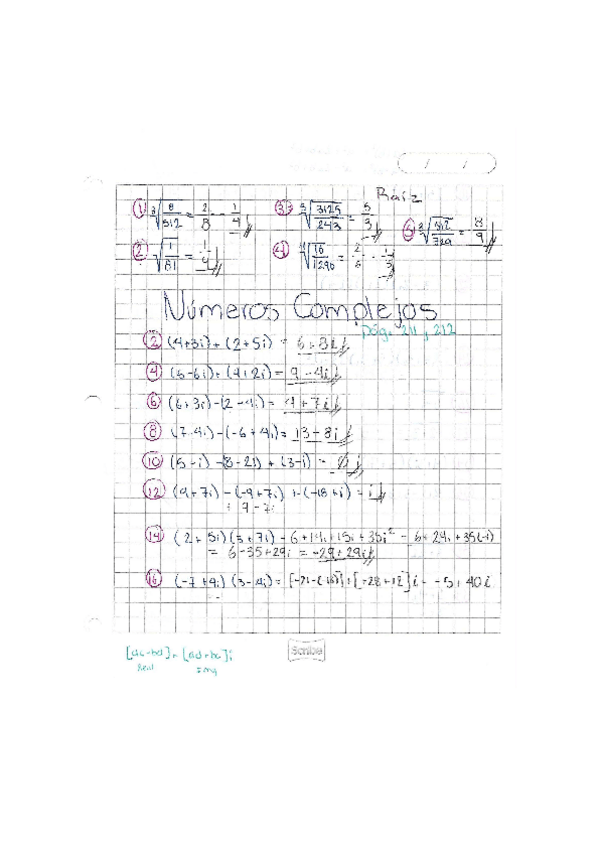 Raíz
① ³√(8/512) = 2/8 = 1/4
③ ⁵√(3125/243) = 5/3
⑤ ³√(512/729) = 8/9
② √(1/81) = 1/9
④ ⁴√(16/1296) = 2/6 = 1/3
Números Complejos
pág. 211, 212
② (4+3i)+(2+5i) = 6+8i
④ (5-6i)+(4+2i) = 9-4i
⑥ (6+3i)-(2-4i) = 4+7i
⑧ (7-4i)-(-6+4i) = 13-8i
⑩ (5-i)-(8-2i)+(3-i) =
⑫ (9+7i)-(-9+7i)+(-18+i) = i
+ 9-7i
⑭ (2+5i)(3+7i) = 6+14i+15i+35i² = 6+29i+35(-1)
= 6-35+29i = -29+29i
⑯ (-7+4i)(3-4i) = [-21-(-16)]+[-28+12]i = -5+40i
Scribe
[ac-bd]+[ad+bc]i
Real
Img